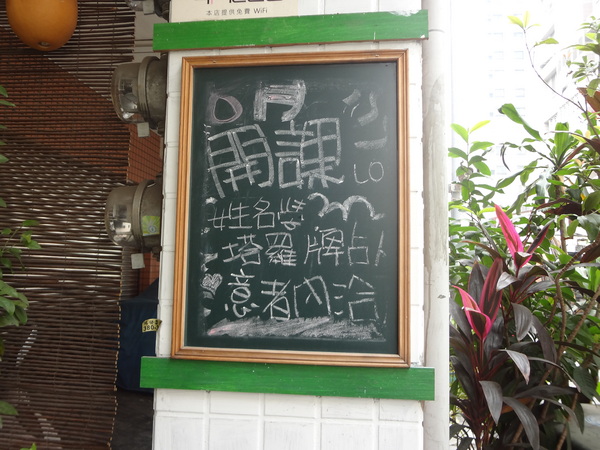 本店提供免費 WiFi
月
開課
姓名學
塔羅牌占卜
意者內洽